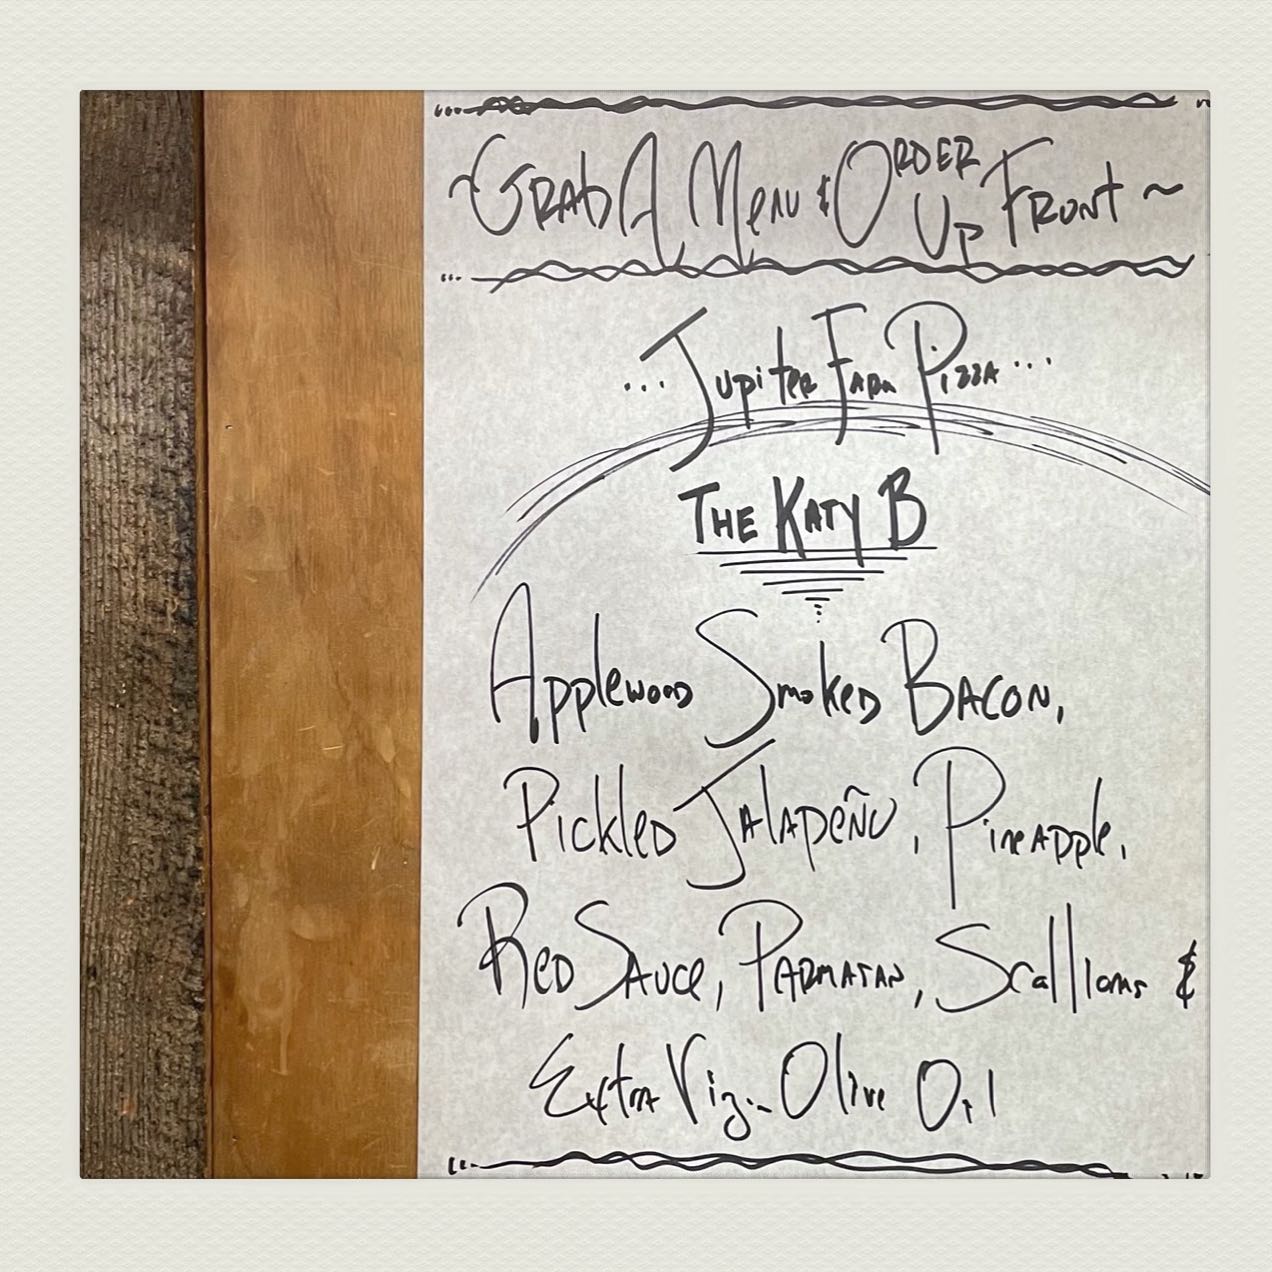 ~ Grab A Menu & Order Up Front ~
... Jupiter Farm Pizza ...
The Katy B
Applewood Smoked Bacon,
Pickled Jalapeño, Pineapple,
Red Sauce, Parmasan, Scallions &
Extra Virgin Olive Oil